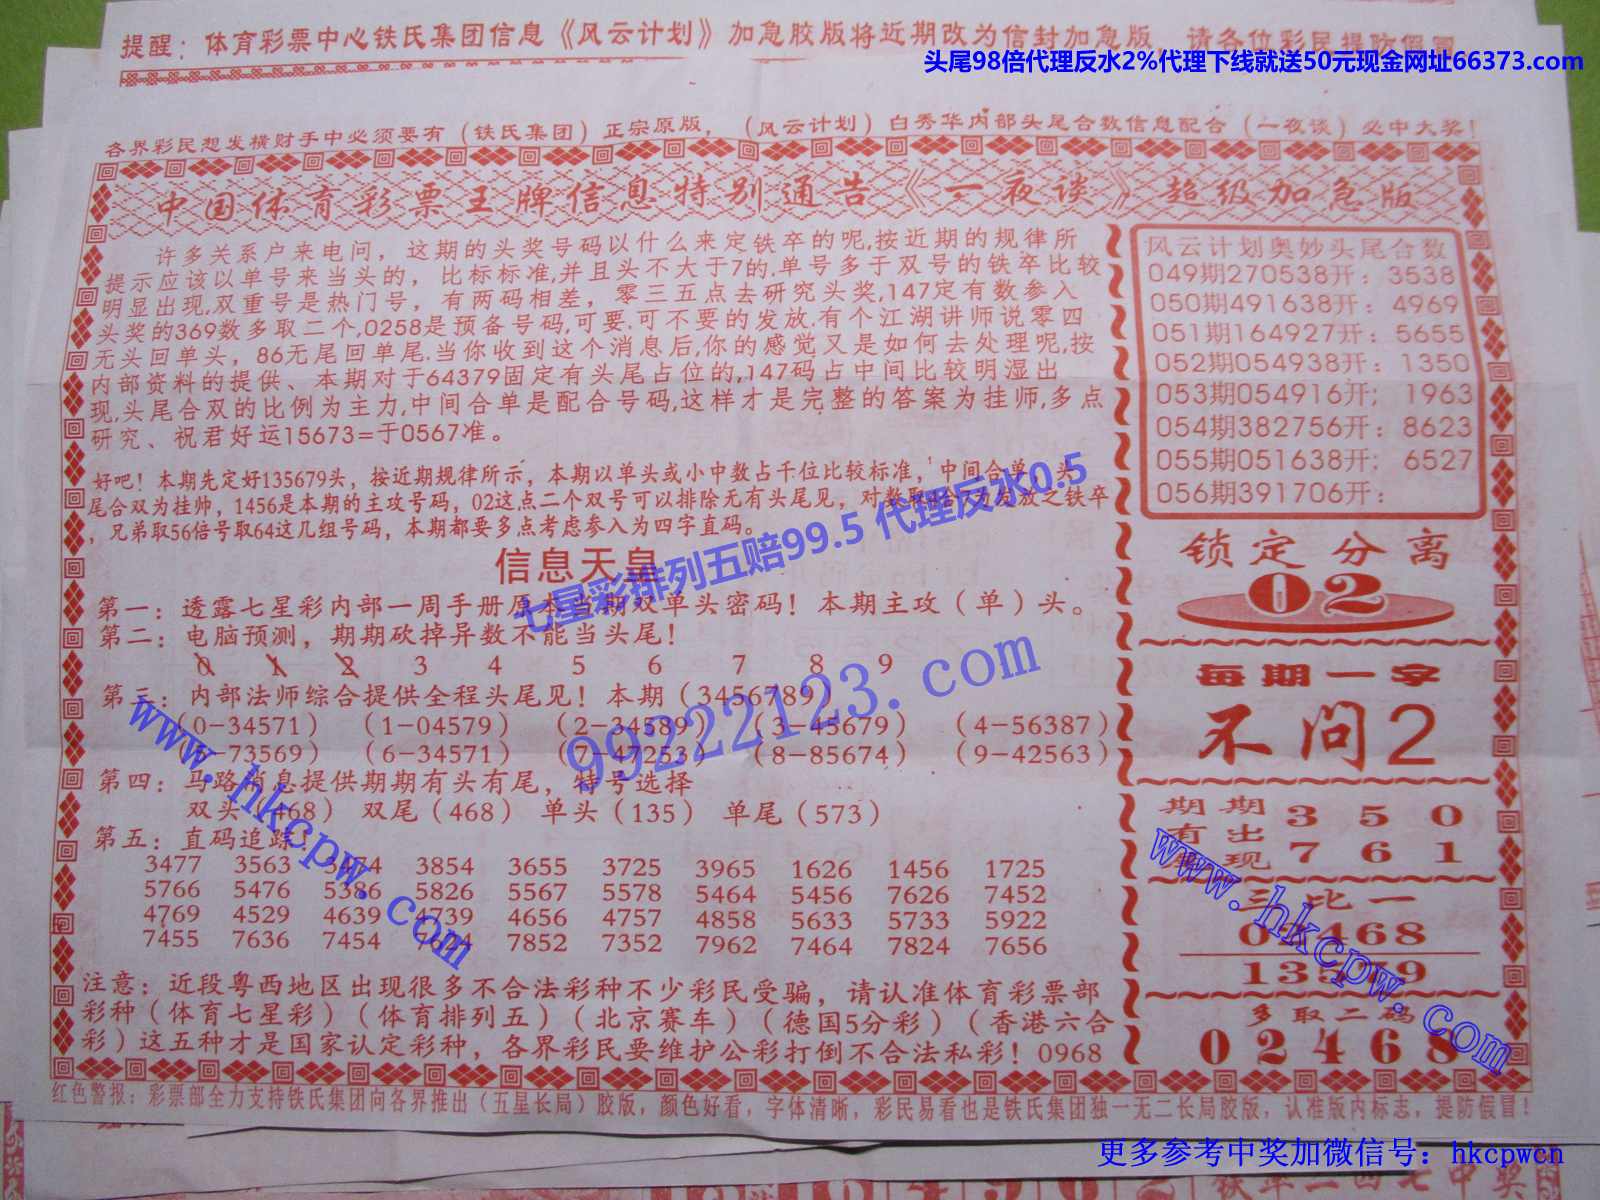 提醒：体育彩票中心铁氏集团信息《风云计划》加急胶版将近期改为信封加急版，请各位彩民提防假冒
头尾98倍代理反水2%代理下线就送50元现金网址66373.com
各界彩民想发横财手中必须要有（铁氏集团）正宗原版，（风云计划）白秀华内部头尾合数信息配合（一夜谈）必中大奖！
中国体育彩票王牌信息特别通告《一夜谈》超级加急版
许多关系户来电问，这期的头奖号码以什么来定铁卒的呢,按近期的规律所
提示应该以单号来当头的，比标标准,并且头不大于7的.单号多于双号的铁卒比较
明显出现,双重号是热门号，有两码相差，零三五点去研究头奖,147定有数参入
头奖的369数多取二个,0258是预备号码,可要.可不要的发放.有个江湖讲师说零四
无头回单头，86无尾回单尾.当你收到这个消息后,你的感觉又是如何去处理呢,按
内部资料的提供、本期对于64379固定有头尾占位的,147码占中间比较明湿出
现,头尾合双的比例为主力,中间合单是配合号码,这样才是完整的答案为挂师,多点
研究、祝君好运15673=于0567准。
好吧！本期先定好135679头，按近期规律所示，本期以单头或小中数占千位比较标准，中间合单、头
尾合双为挂帅，1456是本期的主攻号码，02这点二个双号可以排除无有头尾见，对数取 合7为发放之铁卒
，兄弟取56倍号取64这几组号码，本期都要多点考虑参入为四字直码。
信息天皇
第一：透露七星彩内部一周手册原本当期双单头密码！本期主攻（单）头。
第二：电脑预测，期期砍掉异数不能当头尾！
0 1 2 3 4 5 6 7 8 9
第三：内部法师综合提供全程头尾见！本期（3456789）
（0-34571）（1-04579）（2-34589）（3-45679）（4-56387）
-73569）（6-34571）（7-47253）（8-85674）（9-42563）
第四：马路消息提供期期有头有尾，特号选择
双头（468） 双尾（468） 单头（135） 单尾（573）
第五：直码追踪！
3477 3563 3854 3655 3725 3965 1626 1456 1725
5766 5476 5386 5826 5567 5578 5464 5456 7626 7452
4769 4529 4639 4739 4656 4757 4858 5633 5733 5922
7455 7636 7454 7852 7352 7962 7464 7824 7656
注意：近段粤西地区出现很多不合法彩种不少彩民受骗，请认准体育彩票部
彩种（体育七星彩）（体育排列五）（北京赛车）（德国5分彩）（香港六合
彩）这五种才是国家认定彩种，各界彩民要维护公彩打倒不合法私彩！0968
风云计划奥妙头尾合数
049期270538开：3538
050期491638开：4969
051期164927开：5655
052期054938开：1350
053期054916开；1963
054期382756开：8623
055期051638开；6527
056期391706开：
锁定分离
02
每期一字
不问2
期期 3 5 0
有出
现 7 6 1
三比一
02468
13579
多取二码
02468
红色警报：彩票部全力支持铁氏集团向各界推出（五星长局）胶版，颜色好看，字体清晰，彩民易看也是铁氏集团独一无二长局胶版，认准版内标志，提防假冒！
七星彩排列五赔99.5 代理反水0.5
99222123.com
www.hkcpw.com
www.hkcpw.com
更多参考中奖加微信号：hkcpwcn